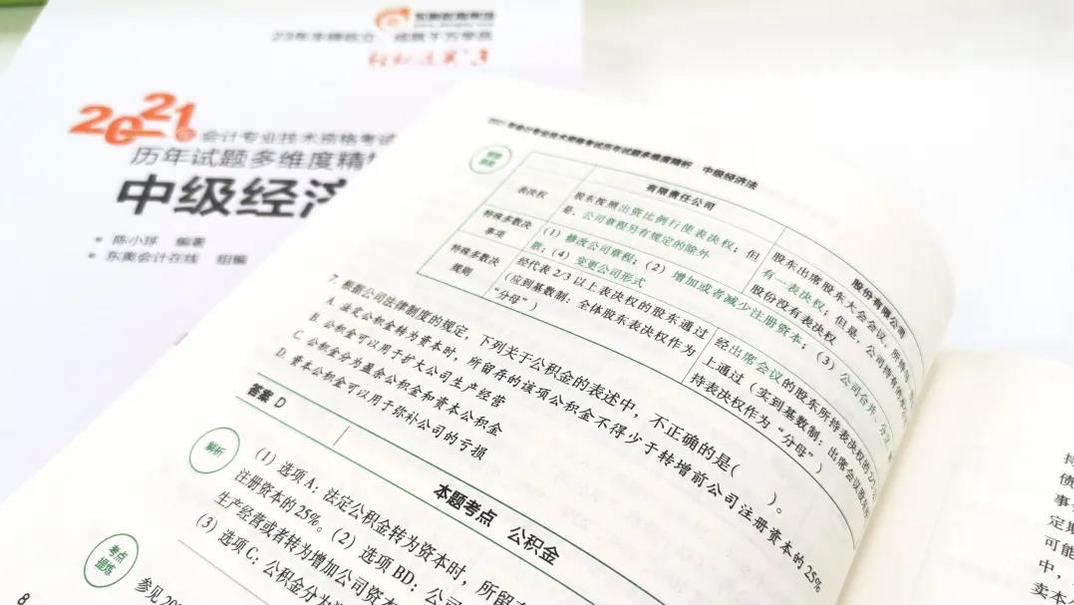 2021年
会计专业技术资格考试
历年试题多维度精
中级经济
陈小球 编著
东奥会计在线 组编
2021年会计专业技术资格考试历年试题多维度精析 中级经济法
有限责任公司
股份有限公司
表决权
股东按照出资比例行使表决权；但
是，公司章程另有规定的除外
股东出席股东大会会议，所持每
有一表决权；但是，公司持有的本
股份没有表决权
特殊多数决
事项
（1）修改公司章程；（2）增加或者减少注册资本；（3）公司合并、分立、
散；（4）变更公司形式
特殊多数决
规则
经代表2/3以上表决权的股东通过
（应到基数制：全体股东表决权作为
“分母”）
经出席会议的股东所持表决权的2/3
上通过（实到基数制：出席会议股东
持表决权作为“分母”）
7. 根据公司法律制度的规定，下列关于公积金的表述中，不正确的是（ ）。
A. 法定公积金转为资本时，所留存的该项公积金不得少于转增前公司注册资本的25%
B. 公积金可以用于扩大公司生产经营
C. 公积金分为盈余公积金和资本公积金
D. 资本公积金可以用于弥补公司的亏损
答案 D
本题考点 公积金
解析
（1）选项A：法定公积金转为资本时，所留
注册资本的25%。（2）选项BD：公
生产经营或者转为增加公司资本
（3）选项C：公积金分为
考点
提炼
参见20
8
持
债
事
定期
可能
中，
卖本